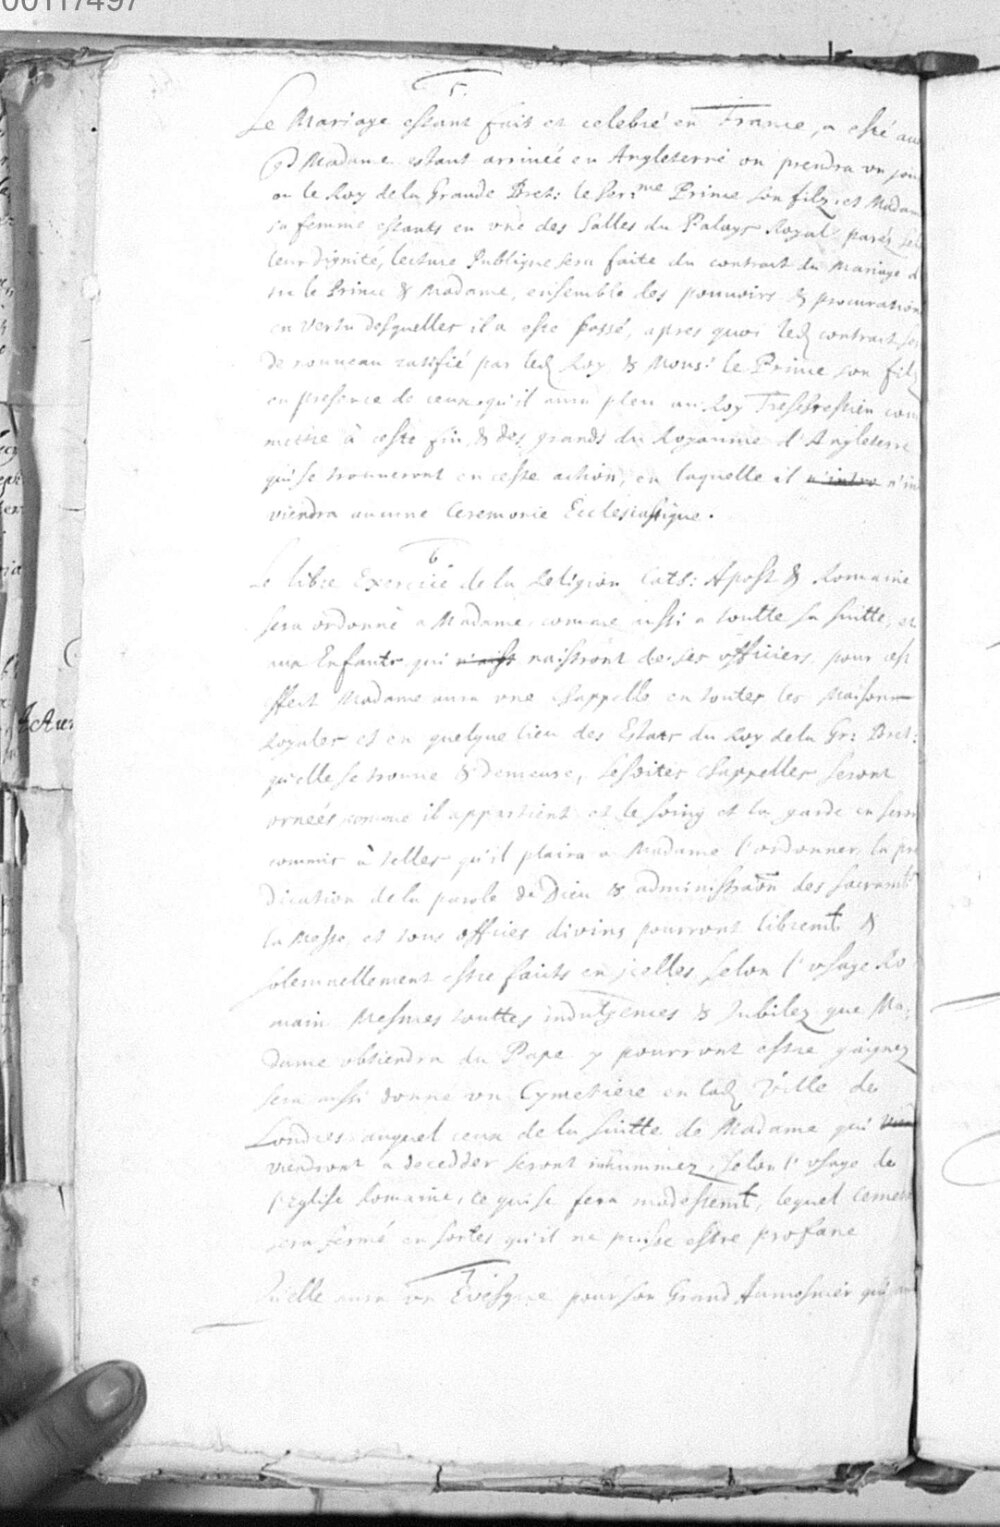 00117497
5.
Le Mariage estant fait et celebré en France, a esté au
Madame estant arriuée en Angleterre on prendra vn jour
ou le Roy de la Grande Bret: le Ser.me Prince son filz, et Madame
sa femme estants en vne des Salles du Palays Royal parés sel
leur dignité, lecture Publique sera faite du contract du Mariage d
tre le Prince & Madame, ensemble des pouuoirs & procuration
en vertu desquelles il a esté passé, apres quoi led contract ser
de nouueau ratifié par led Roy & Mons.r le Prince son filz
en presence de ceux qu'il aura pleu au Roy Treschrestien com
mettre à ceste fin & des grands du Royaume d'Angleterre
qui se trouueront en ceste action, en laquelle il n'intro n'in
viendra aucune Ceremonie Ecclesiastique.
6.
Le libre Exercice de la Religion Cath: Apost & Romaine
sera ordonné a Madame comme aussi a toutte sa suitte, et
aux Enfants qui naist naistront de ses officiers, pour cest
effect Madame aura vne Chappelle en toutes les Maisons
Royales et en quelque lieu des Estats du Roy de la Gr: Bret:
qu'elle se trouue & demeure, Lesdites Chappelles seront
ornées comme il appartient et le soing et la garde en sera
commis à telles qu'il plaira a Madame l'ordonner, la pre
dication de la parole de Dieu & administraon des sacramts
la Messe, et tous offices divins pourront libremt &
solemnellement estre faicts en jcelles selon l'vsage Ro
main Mesmes touttes indulgences & Jubilez que Ma:
dame obtiendra du Pape y pourront estre gaignez
sera aussi donné vn Cymetiere en lad Ville de
Londres auquel ceux de la suitte de Madame qui vien
viendront a decedder seront inhummez, selon l'vsage de
l'Eglise Romaine, ce qui se fera modestemt, lequel Cemet
sera fermé en sortes qu'il ne puisse estre profané
7
Qu'elle aura vn Evesque pour son Grand Aumosnier qui au